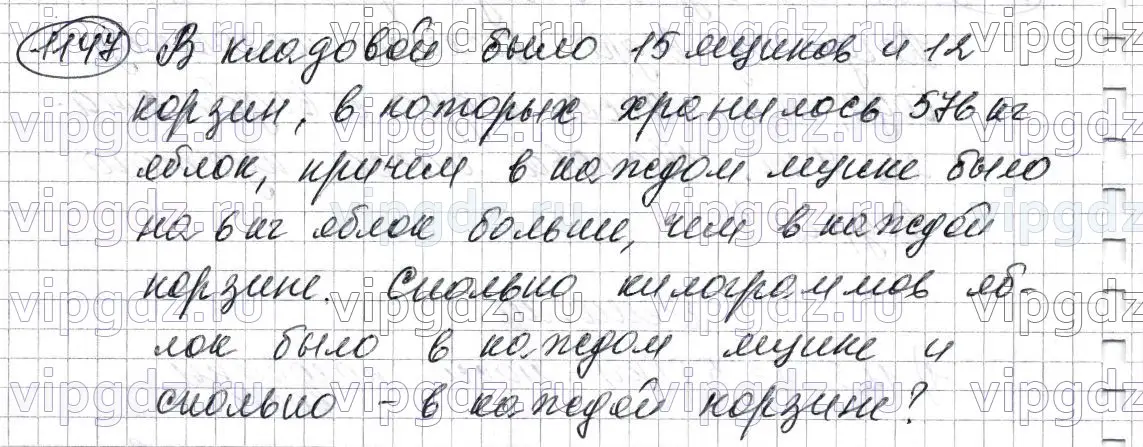 1147 В кладовой было 15 ящиков и 12
корзин, в которых хранилось 576 кг
яблок, причем в каждом ящике было
на 6 кг яблок больше, чем в каждой
корзине. Сколько килограммов яб-
лок было в каждом ящике и
сколько – в каждой корзине?
vipgdz.ru